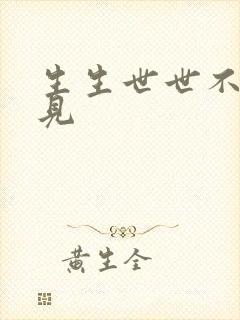 生生世世不
見
黄生全